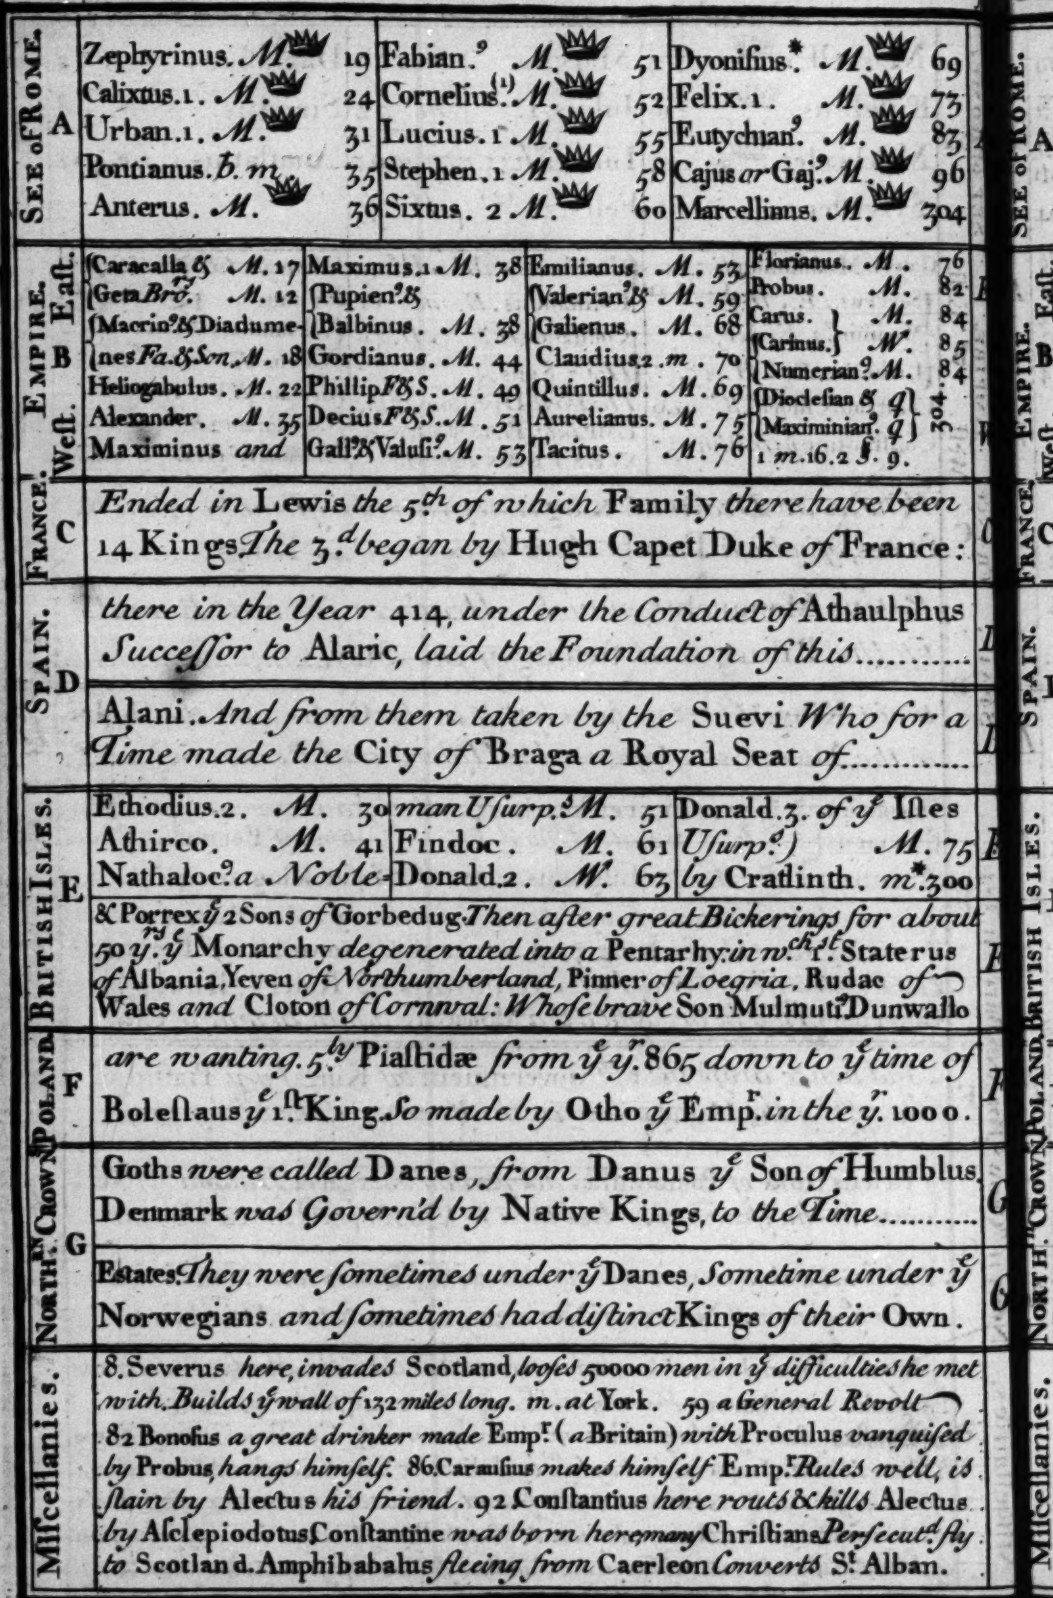 SEE of ROME.
A
Zephyrinus. M. 19
Calixtus. 1. M. 24
Urban. 1. M. 31
Pontianus. b. m. 35
Anterus. M. 36
Fabian.⁹ M. 51
Cornelius.(1) M. 52
Lucius. 1 M. 55
Stephen. 1 M. 58
Sixtus. 2 M. 60
Dyonisius.* M. 69
Felix. 1. M. 73
Eutychian⁹. M. 83
Cajus or Gaj⁹. M. 96
Marcellinus. M. 304
EMPIRE.
East.
West.
B
Caracalla & M. 17
Geta Bro. M. 12
Macrin⁹. & Diadume-
nes Fa. & Son. M. 18
Heliogabulus. M. 22
Alexander. M. 35
Maximinus and
Maximus. 1 M. 38
Pupien⁹. &
Balbinus. M. 38
Gordianus. M. 44
Phillip F & S. M. 49
Decius F & S. M. 51
Gall⁹. & Valusi⁹. M. 53
Emilianus. M. 53
Valerian⁹. & M. 59
Galienus. M. 68
Claudius 2. m. 70
Quintillus. M. 69
Aurelianus. M. 75
Tacitus. M. 76
Florianus. M. 76
Probus. M. 82
Carus. M. 84
Carinus. W. 85
Numerian⁹. M. 84
Dioclesian & q
Maximinian⁹. q 304.
1 m. 16. 2 §. 9.
FRANCE.
C
Ended in Lewis the 5.th of which Family there have been
14 Kings. The 3.d began by Hugh Capet Duke of France:
SPAIN.
D
there in the Year 414, under the Conduct of Athaulphus
Successor to Alaric, laid the Foundation of this............
Alani. And from them taken by the Suevi Who for a
Time made the City of Braga a Royal Seat of.............
BRITISH ISLES.
E
Ethodius. 2. M. 30
Athirco. M. 41
Nathaloc⁹. a Noble=
man Usurp.d M. 51
Findoc. M. 61
Donald. 2. W. 63
Donald. 3. of ye Isles
Usurp.d) M. 75
by Cratlinth. m* 300
& Porrex ye 2 Sons of Gorbedug. Then after great Bickerings for about
50 y.rs ye Monarchy degenerated into a Pentarchy: in w.ch 1.st Staterus
of Albania, Yeven of Northumberland, Pinner of Loegria, Rudac of
Wales and Cloton of Cornwal: Whose brave Son Mulmuti⁹. Dunwallo
POLAND.
F
are wanting. 5.ly Piastidæ from ye y.r 865 down to ye time of
Boleslaus ye 1.st King. So made by Otho ye Emp.r in the y.r 1000.
NORTH.RN CROWNS
G
Goths were called Danes, from Danus ye Son of Humblus.
Denmark was Govern'd by Native Kings, to the Time...........
Estates: They were sometimes under ye Danes, Sometime under ye
Norwegians and sometimes had distinct Kings of their Own.
Miscellanies.
8. Severus here, invades Scotland, looses 50000 men in ye difficulties he met
with. Builds ye wall of 132 miles long. m. at York. 59 a General Revolt
82 Bonosus a great drinker made Emp.r (a Britain) with Proculus vanquised
by Probus, hangs himself. 86. Carausius makes himself Emp.r Rules well, is
slain by Alectus his friend. 92 Constantius here routs & kills Alectus
by Asclepiodotus, Constantine was born here, many Christians Persecut.d fly
to Scotland. Amphibabalus fleeing from Caerleon Converts S.t Alban.
SEE of ROME.
A
EMPIRE.
East.
West
B
FRANCE.
C
SPAIN.
BRITISH ISLES.
POLAND.
NORTH.RN CROWNS
Miscellanies.